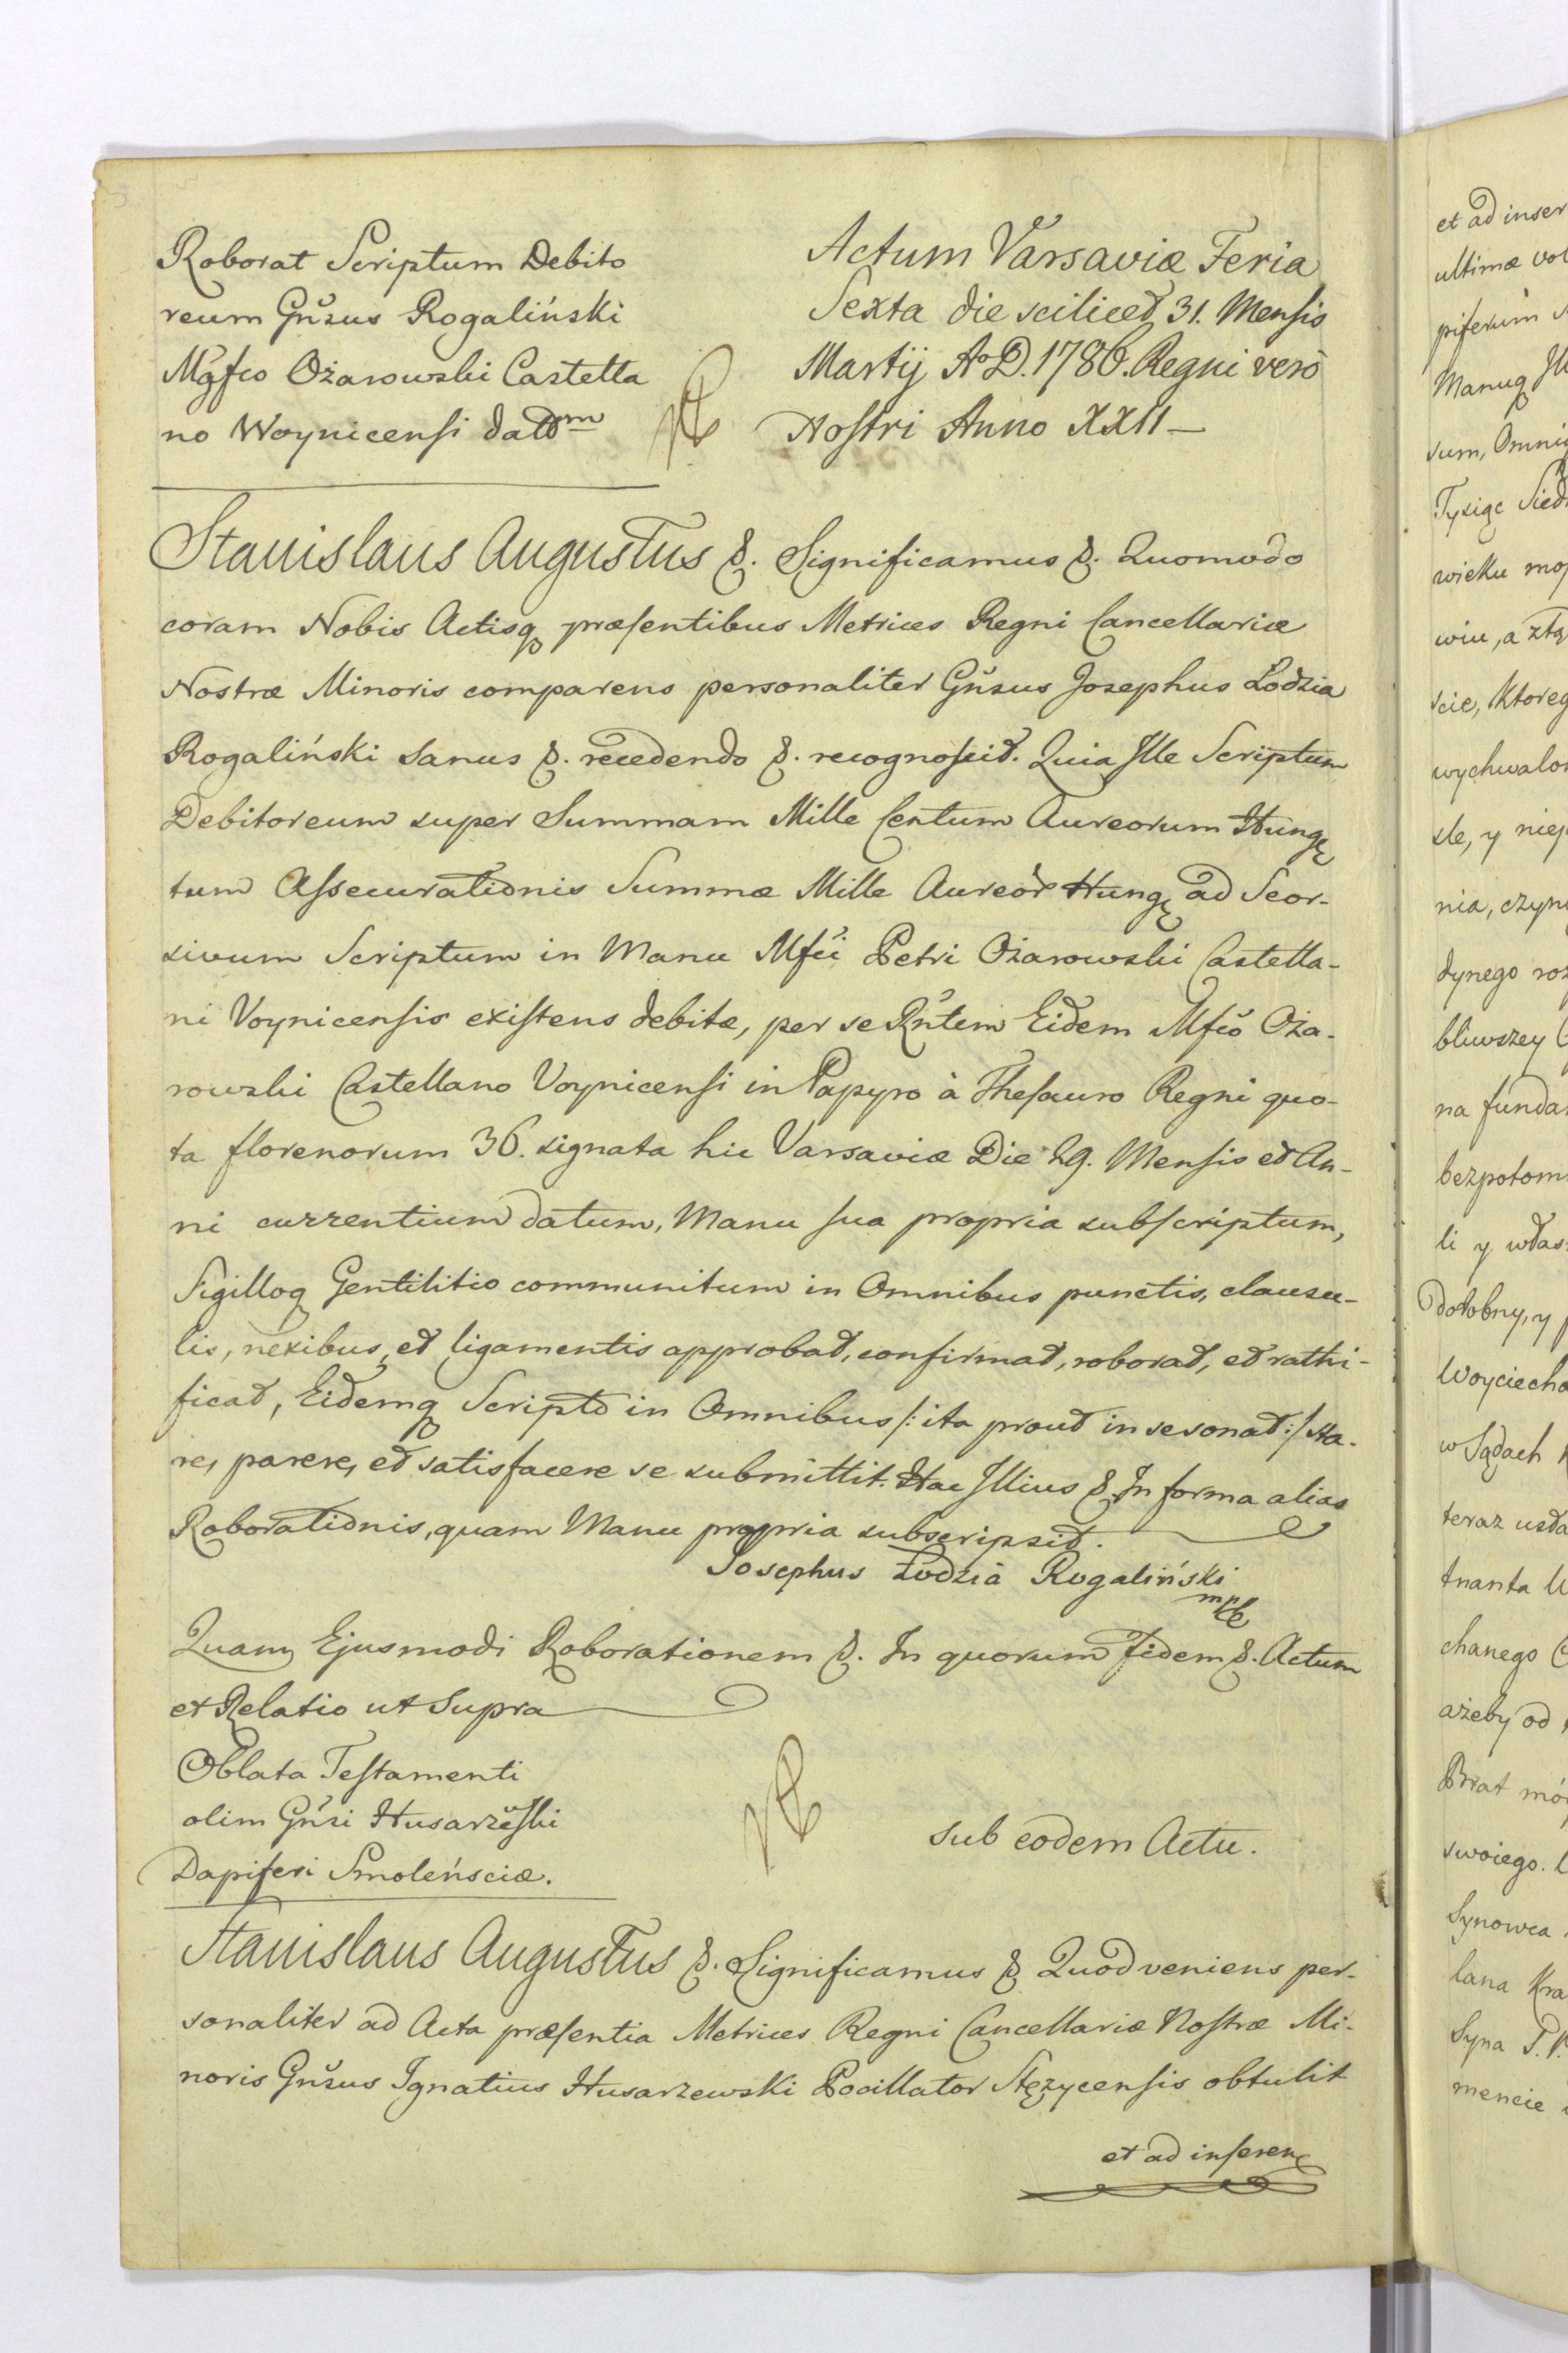 Roborat Scriptum Debito
reum Gn̆sus Rogaliński
Mgfco Ożarowski Castella
no Woynicensi datᵐ
Actum Varsaviæ Feria
Sexta die scilicet 31. Mensis
Martij Aō D. 1786. Regni verò
Nostri Anno XXII—
Stanislaus Augustus &. Significamus &. Quomodo
coram Nobis Actisq præsentibus Metrices Regni Cancellariæ
Nostræ Minoris comparens personaliter Gn̆sus Josephus Lodzia
Rogaliński sanus &. recedendo &. recognoscit. Quia Ille Scriptum
Debitoreum super Summam Mille Centum Aureorum Hung
tum Assecurationis Summæ Mille Aureor Hung ad Seor-
sivum Scriptum in Manu Mfci Petri Ożarowski Castella-
ni Voynicensis existens debitæ, per se Rn̆tem Eidem Mfco Oża-
rowski Castellano Voynicensi in Papyro à Thesauro Regni quo-
ta florenorum 36. signata hic Varsaviæ Die 29. Mensis et An-
ni currentium datum, Manu sua propria subscriptum,
Sigilloq Gentilitio communitum in Omnibus punctis, clausu-
lis, nexibus, et ligamentis approbat, confirmat, roborat, et rathi-
ficat, Eidemq Scripto in Omnibus /: ita prout in se sonat :/ sta-
re, parere, et satisfacere se submittit. Hac Illius & In forma alias
Roborationis, quam Manu propria subscripsit.
Josephus Łodzia Rogaliński
mp
Quam Ejusmodi Roborationem &. In quorum Fidem &. Actum
et Relatio ut Supra
Oblata Testamenti
olim Gn̆si Husarzewski
Dapiferi Smolénsciæ.
sub eodem Actu.
Stanislaus Augustus &. Significamus & Quod veniens per-
sonaliter ad Acta præsentia Metrices Regni Cancellariæ Nostræ Mi-
noris Gn̆sus Ignatius Husarzewski Pocillator Stężycensis obtulit
et ad inseren
et ad inser
ultimæ vol
piferum
Manuq
sum, Omni
Tysiąc Sied
wieku
wiu, a
scie, ktoreg
wychwalo
sle, y niep
nia, czyni
dynego roz
bliwszey
na funda
bezpotom
li y włas
dotobny, y
Woyciecha
w Sądach
teraz usta
tnanta
chanego
ażeby od
Brat mó
swoiego.
Synowca
lana Kra
Syna P.
mencie